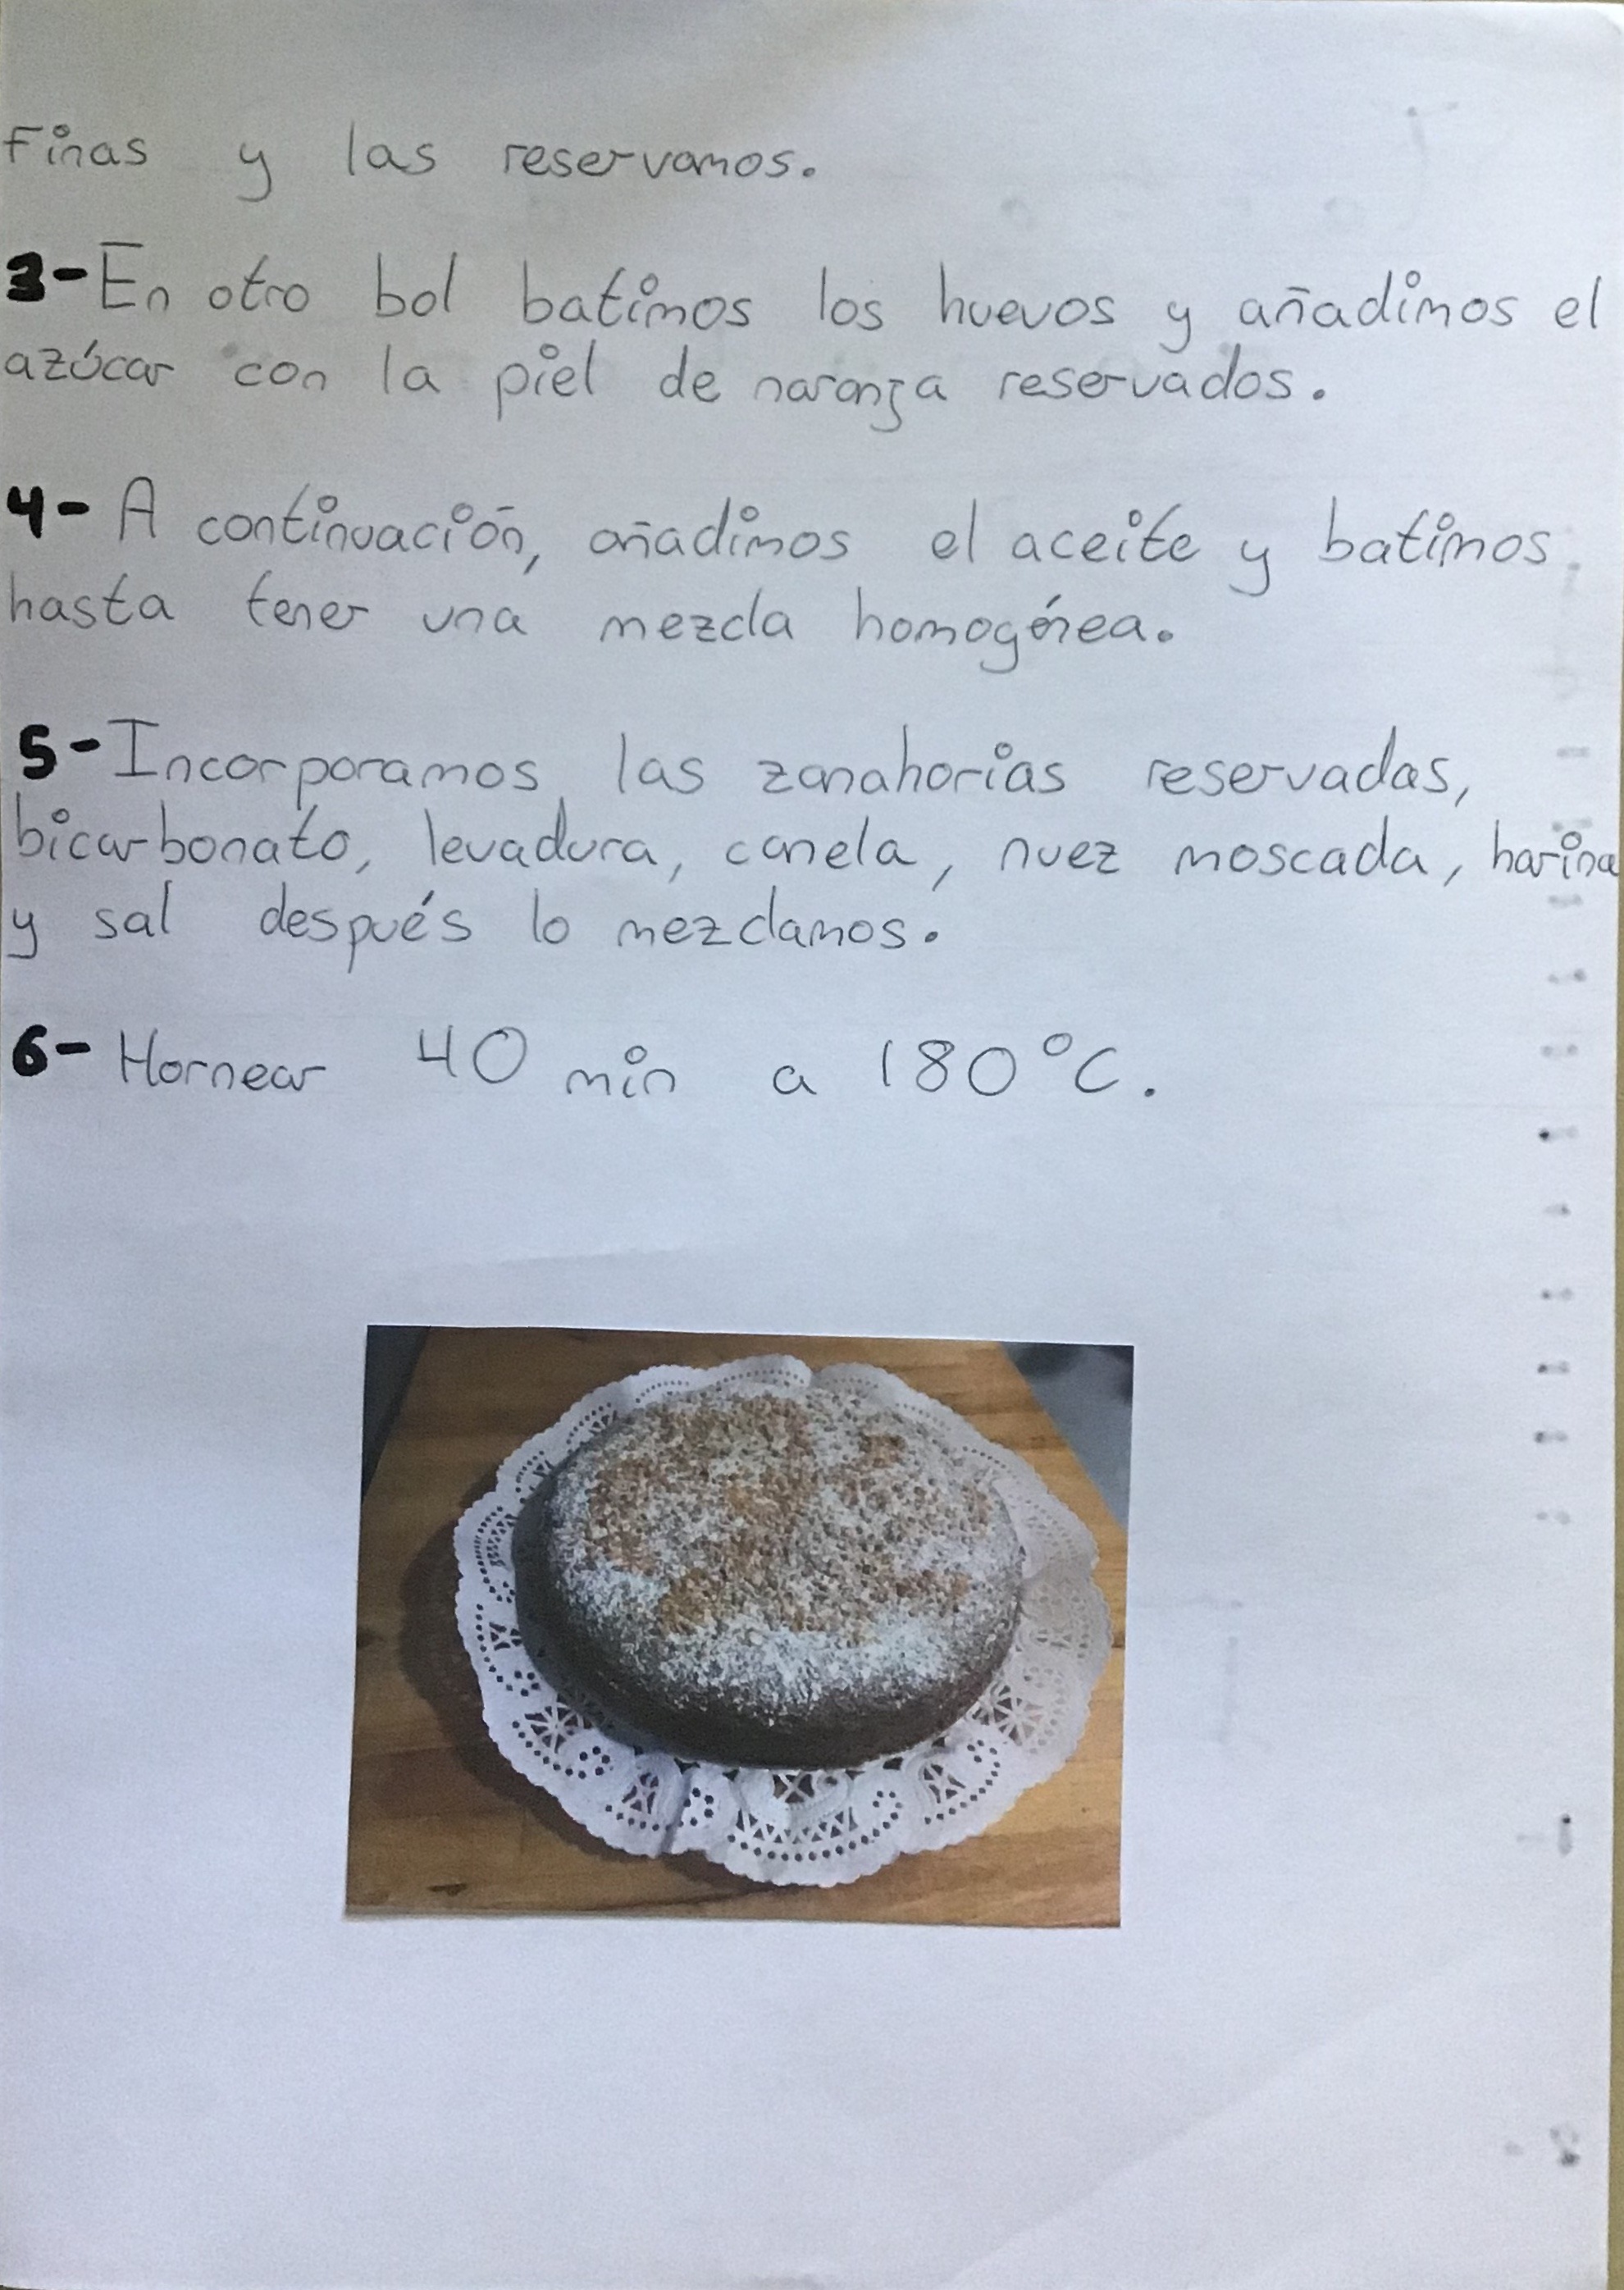 Finas y las reservamos.
3-En otro bol batimos los huevos y añadimos el
azúcar con la piel de naranja reservados.
4- A continuación, añadimos el aceite y batimos
hasta tener una mezcla homogénea.
5-Incorporamos las zanahorias reservadas,
bicarbonato, levadura, canela, nuez moscada, harina
y sal después lo mezclamos.
6- Hornear 40 min a 180°C.